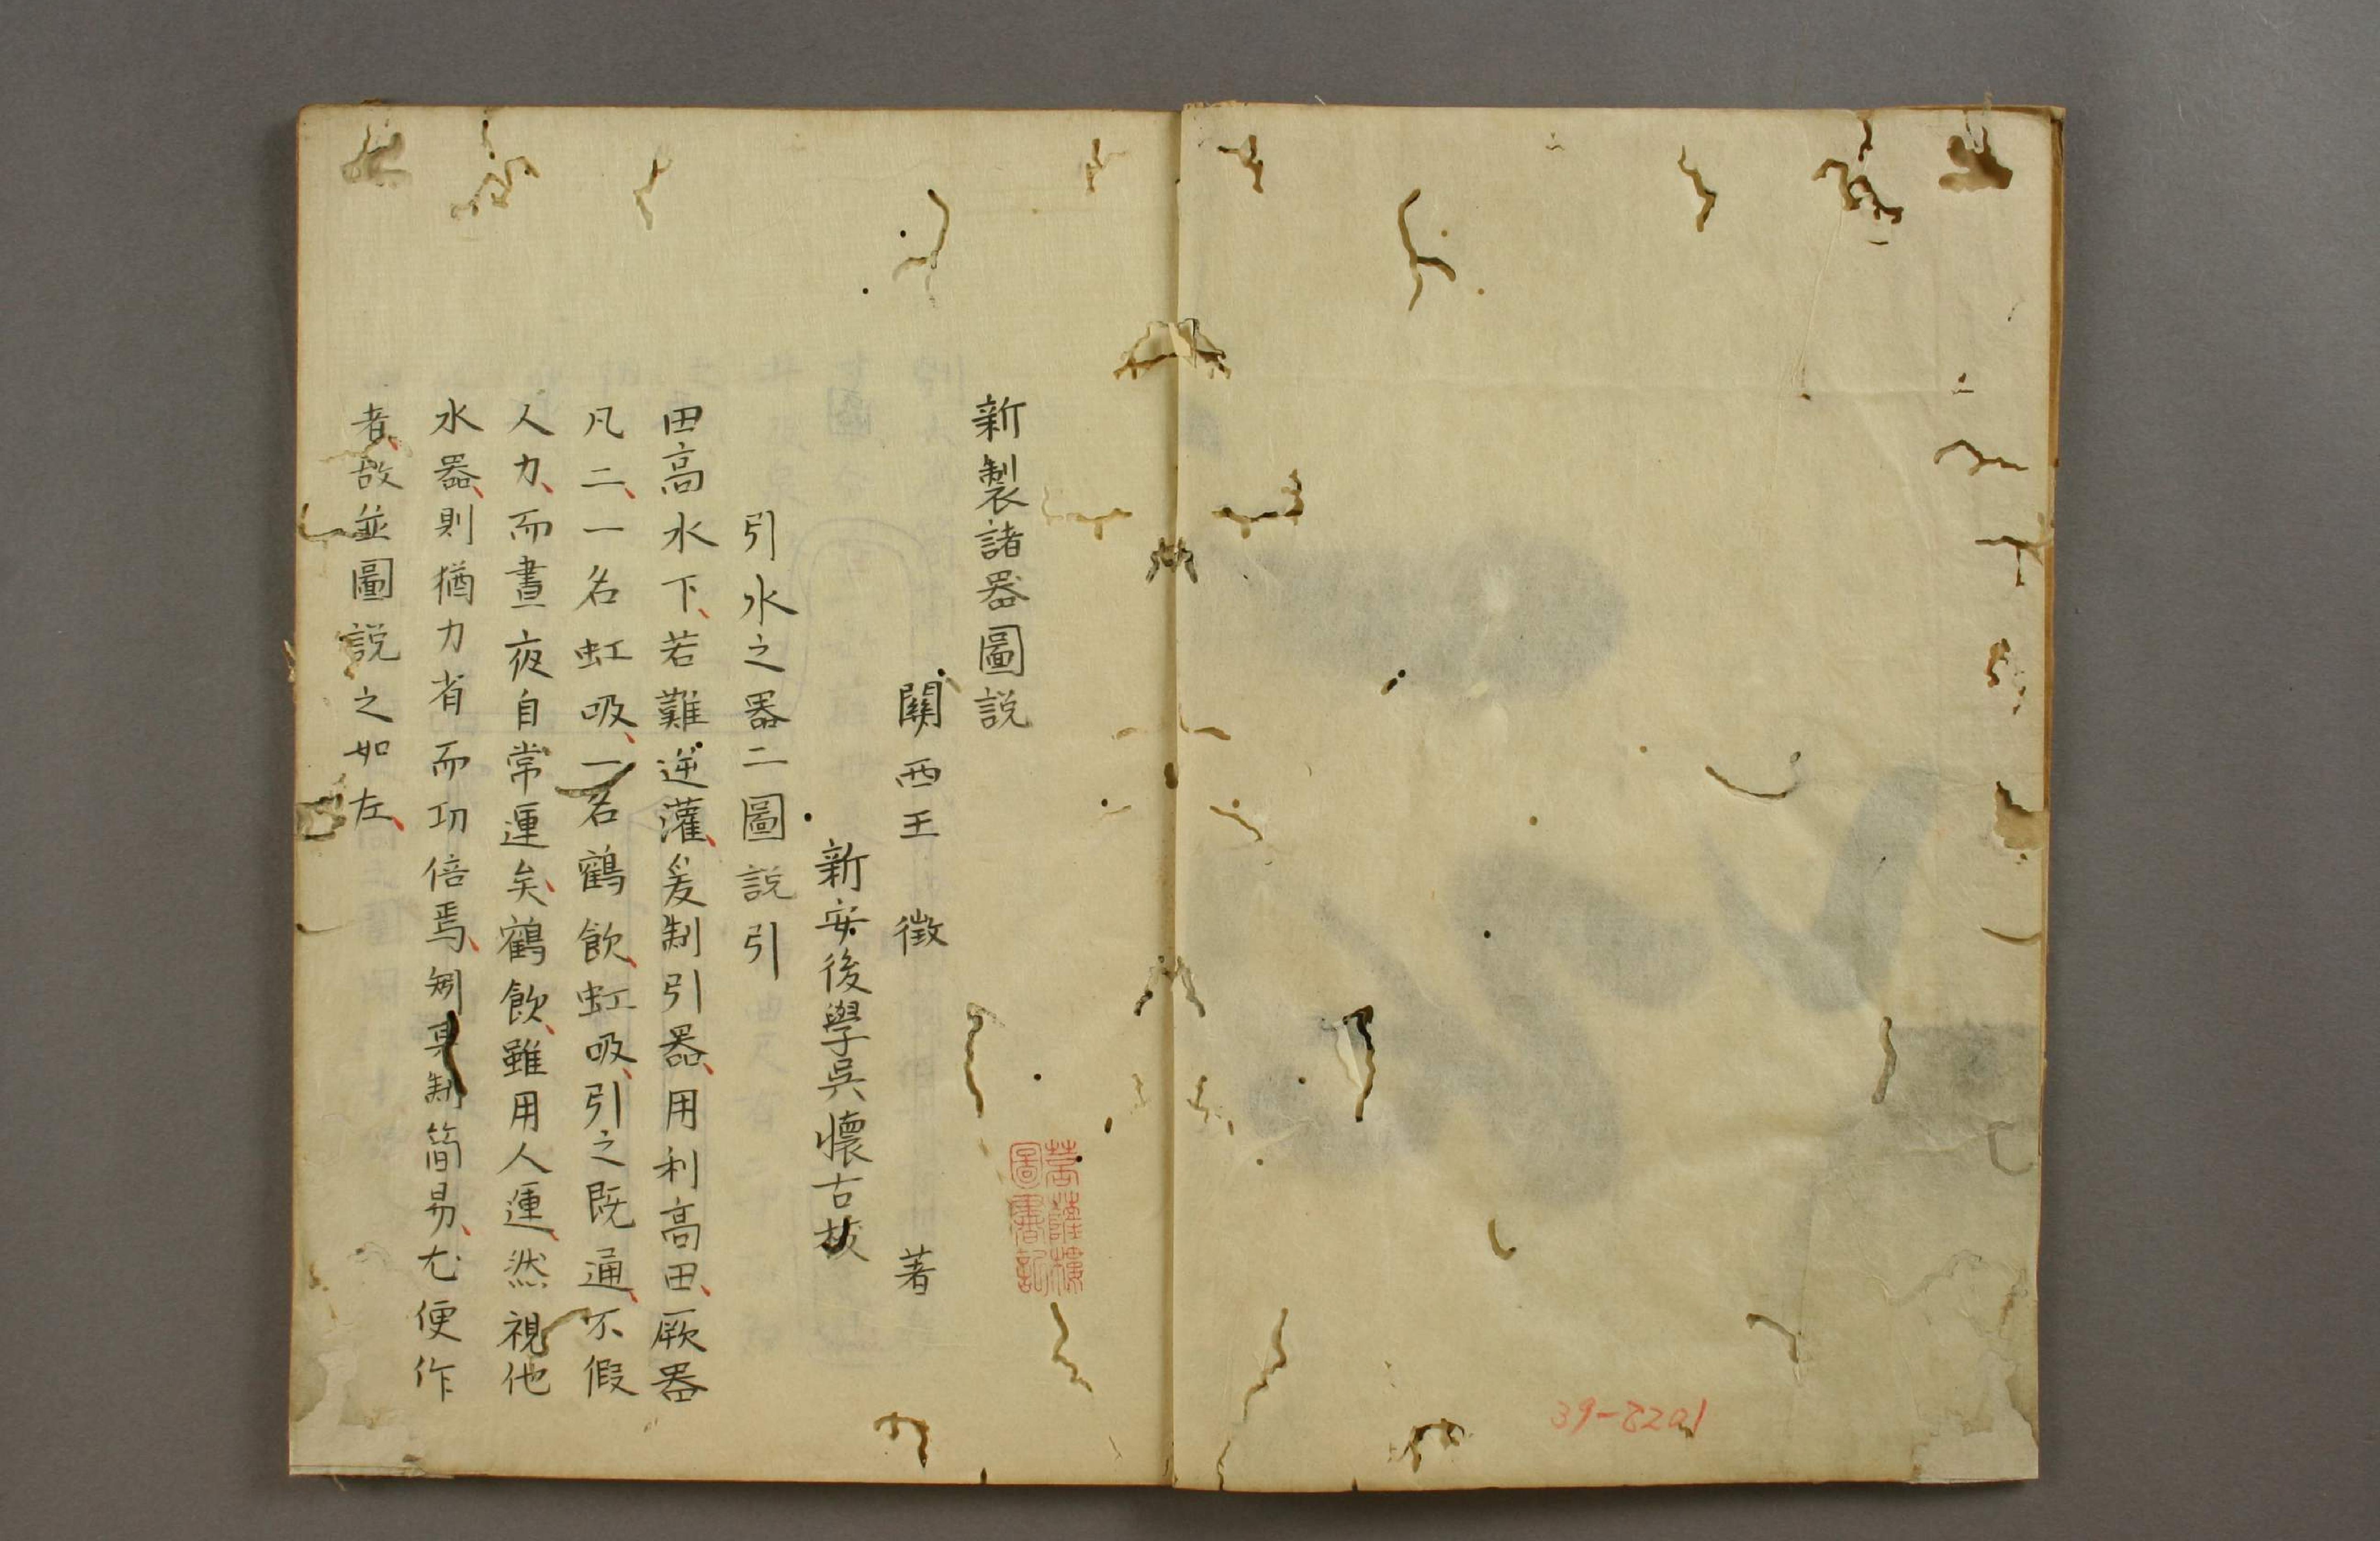 新製諸器圖説
關西王徵著
新安後學吳懷古校
引水之器二圖説引
田高水下、若難逆灌、爰制引器、用利高田、厥器
凡二、一名虹吸、一名鶴飲、虹吸、引之既通、不假
人力、而晝夜自常運矣、鶴飲、雖用人運、然視他
水器、則猶力省而功倍焉、矧其制簡易、尤便作
者、故並圖説之如左、
菩薩樓
圖書記
39-2201